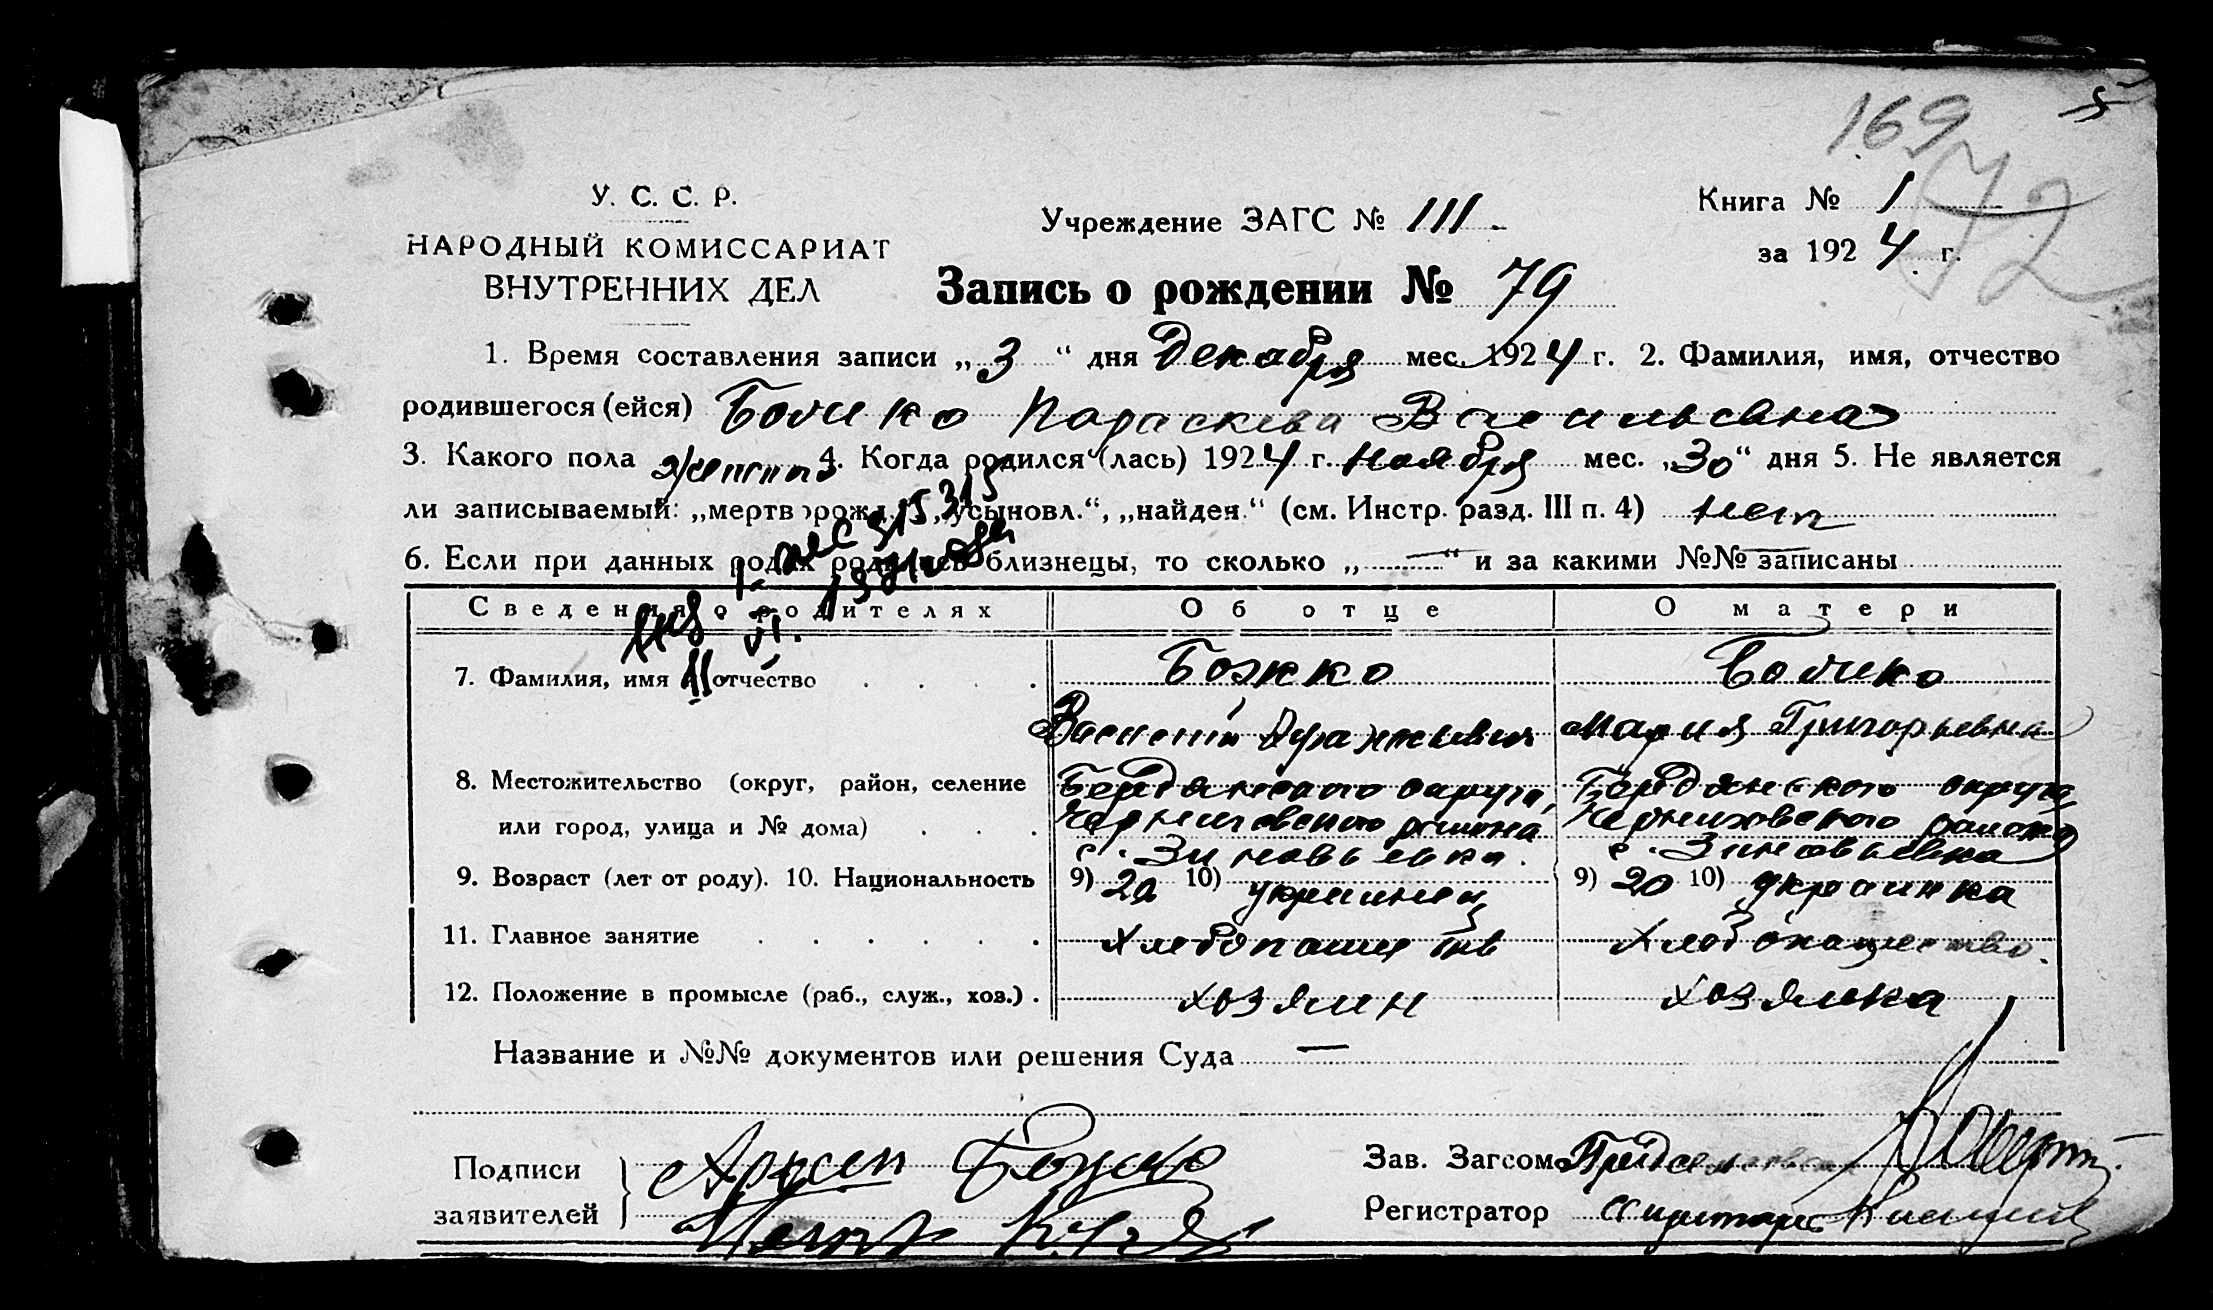 5
169
72
У. С. С. Р.
НАРОДНЫЙ КОМИССАРИАТ
ВНУТРЕННИХ ДЕЛ
Учреждение ЗАГС № 111
Книга № 1
за 1924 г.
Запись о рождении № 79
1. Время составления записи „3“ дня Декабря мес. 1924 г. 2. Фамилия, имя, отчество
родившегося (ейся) Божко Параскева Васильевна
3. Какого пола женск 4. Когда родился (лась) 1924 г. Ноября мес. „30“ дня 5. Не является
ли записываемый: „мертворожд.“, „усыновл.“, „найден.“ (см. Инстр. разд. III п. 4) нет
6. Если при данных родах родились близнецы, то сколько „—“ и за какими №№ записаны —
Сведения о родителях Об отце О матери
7. Фамилия, имя и отчество Божко Божко
Мария Григорьевна
8. Местожительство (округ, район, селение Бердянского округа, Бердянского округа
или город, улица и № дома) Черниговского района Черниговского района
с. Зиновьевка. с. Зиновьевка
9. Возраст (лет от роду). 10. Национальность 9) 10) украинец 9) 20 10) украинка
11. Главное занятие Хлебопашество Хлебопашество.
12. Положение в промысле (раб., служ., хоз.). хозяин хозяйка
Название и №№ документов или решения Суда —
Подписи заявителей Божко
Зав. Загсом Пред
Регистратор Секретарь